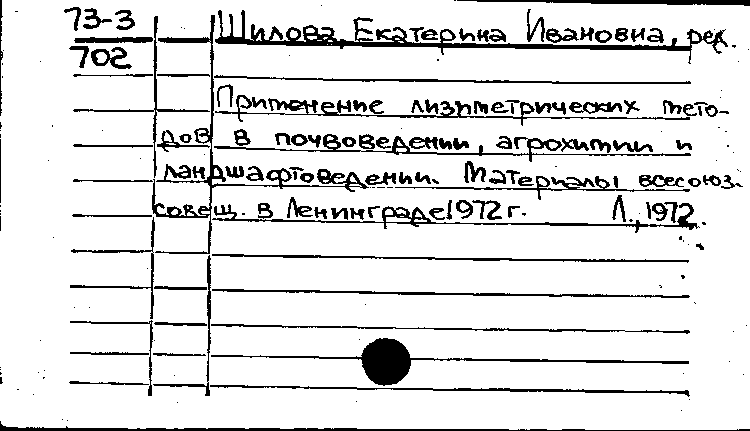 73-3 Шилова, Екатерина Ивановна, ред.
702
Применение лизиметрических мето-
дов в почвоведении, агрохимии и
ландшафтоведении. Материалы всесоюз.
совещ. в Ленинграде 1972 г. Л., 1972.